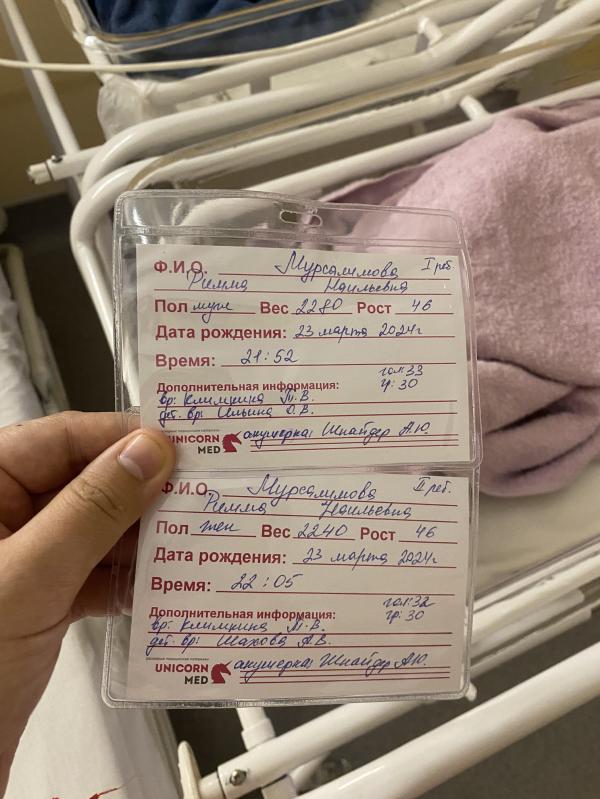 Ф.И.О. Мурсалимова I реб.
Римма Наильевна
Пол муж Вес 2280 Рост 46
Дата рождения: 23 марта 2024г
Время: 21:52
Дополнительная информация: гол: 33
вр: Климкина М.В. гр: 30
дет. вр: Ильина О.В.
UNICORN MED акушерка: Шнайдер А.Ю.
Ф.И.О. Мурсалимова II реб.
Римма Наильевна
Пол жен Вес 2240 Рост 46
Дата рождения: 23 марта 2024г
Время: 22:05
Дополнительная информация: гол: 32
вр: Климкина М.В. гр: 30
дет. вр: Шахова А.В.
UNICORN MED акушерка: Шнайдер А.Ю.